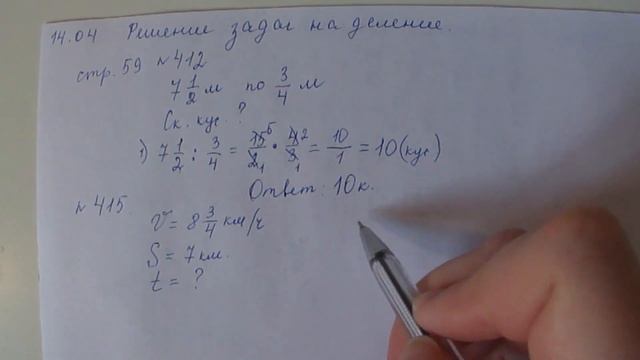 14.04 Решение задач на деление.
стр. 59 №412
7 1/2 м по 3/4 м
Ск. кус. ?
1) 7 1/2 : 3/4 = 15 5/2 1 · 4 2/3 1 = 10/1 = 10 (кус)
Ответ: 10 к.
№415.
V = 8 3/4 км/ч
S = 7 км.
t = ?